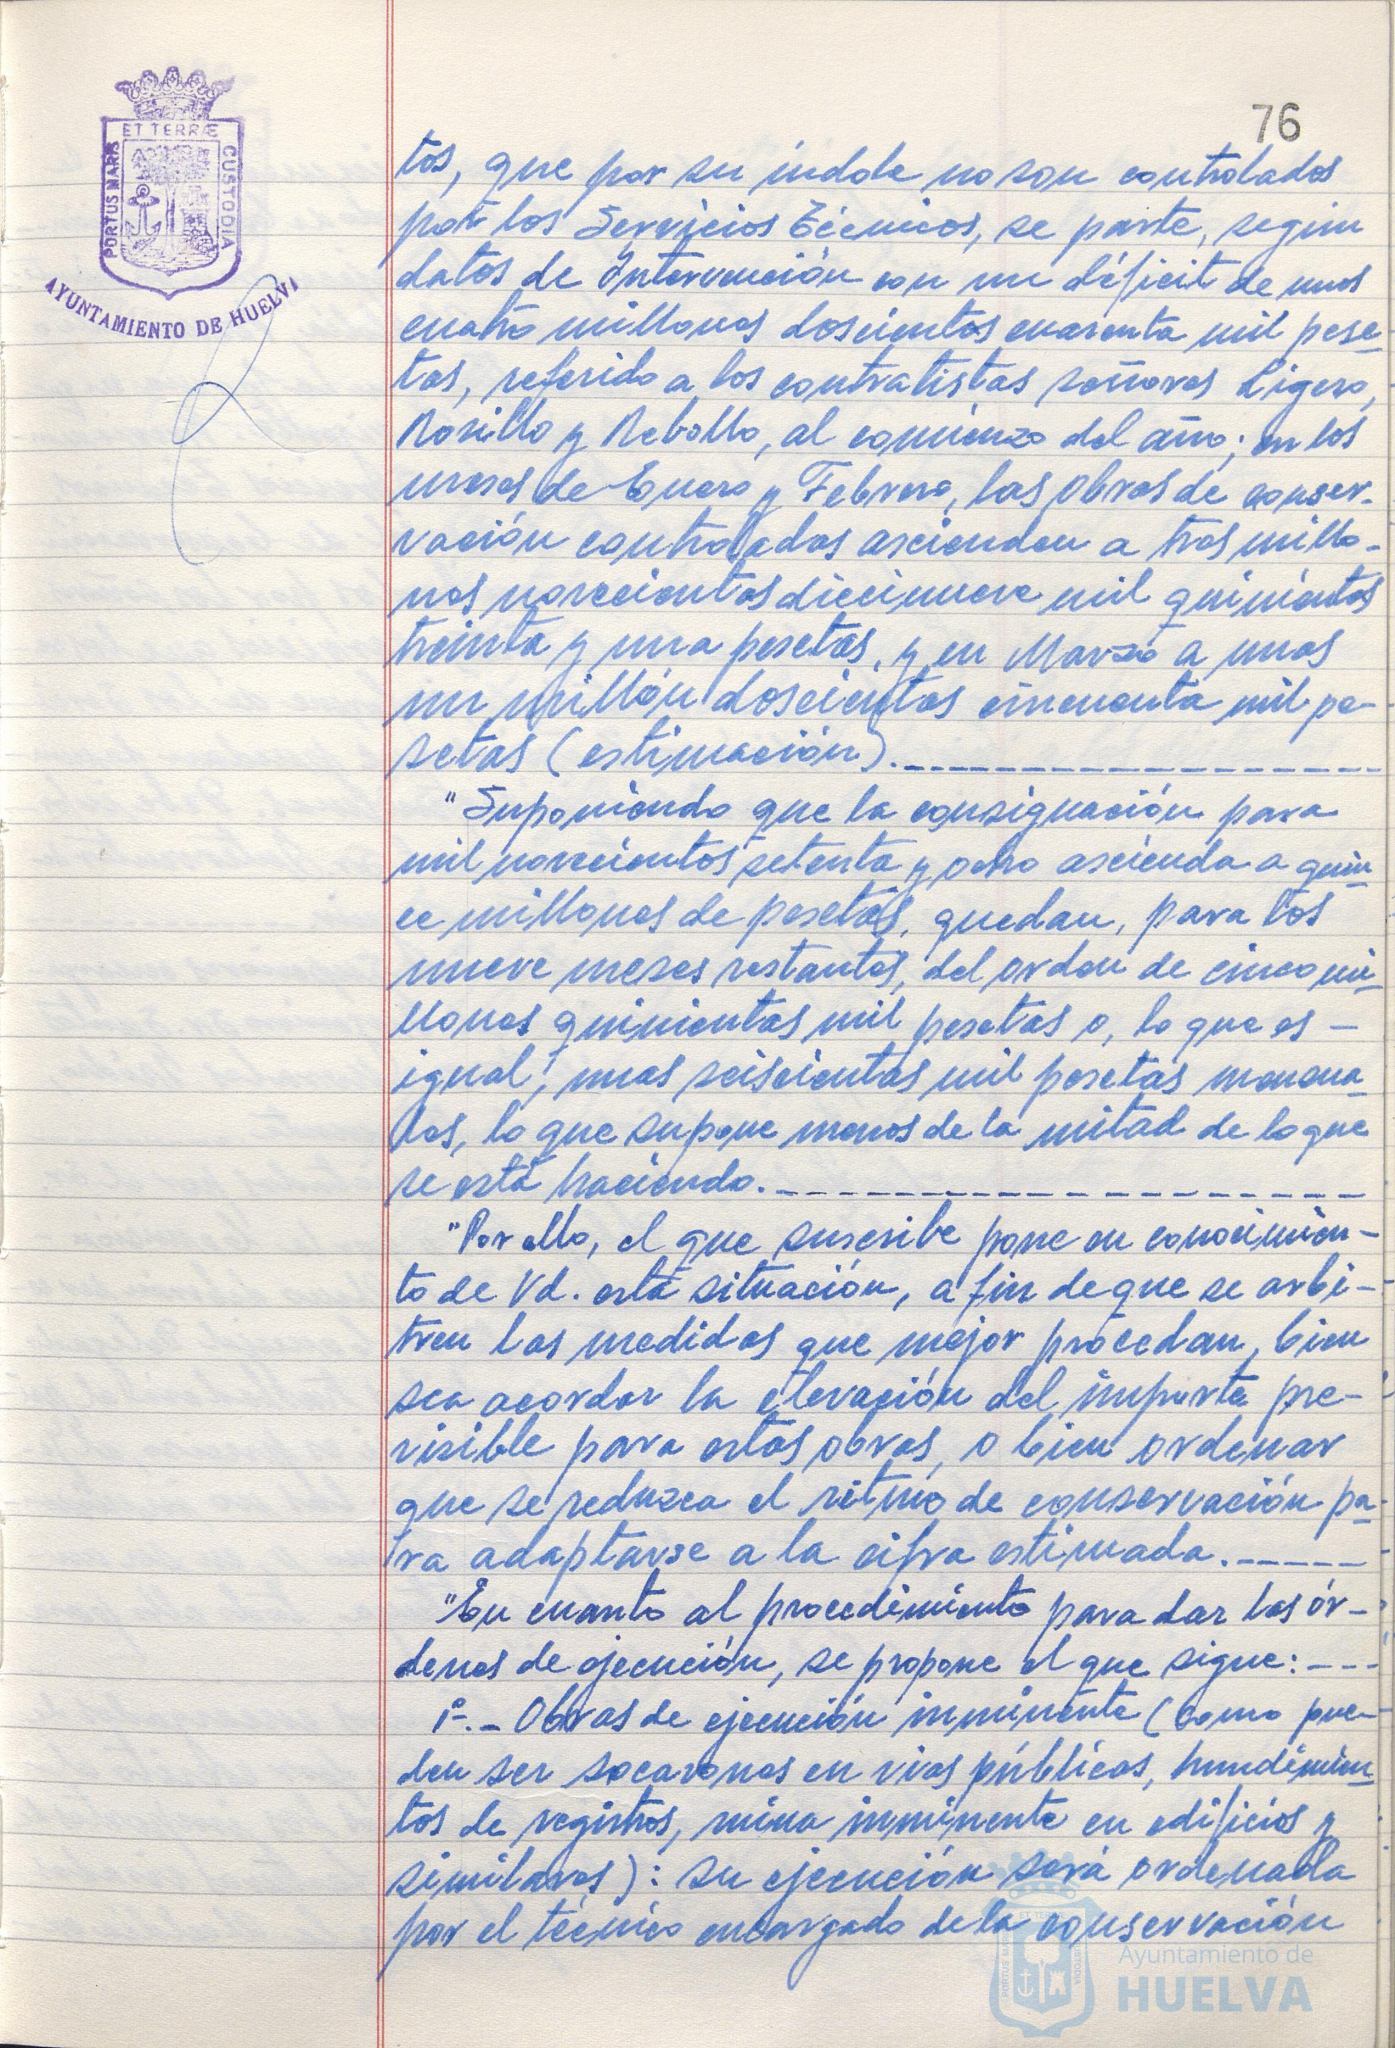 76
ET TERRÆ
PORTUS MARIS
CUSTODIA
AYUNTAMIENTO DE HUELVA
tos, que por su índole no son controlados
por los Servicios Técnicos, se parte, según
datos de Intervención con un déficit de unos
cuatro millones doscientos cuarenta mil pese-
tas, referido a los contratistas señores Ligero,
Rosillo y Rebollo, al comienzo del año; en los
meses de Enero y Febrero, las obras de conser-
vación controladas ascienden a tres millo-
nes novecientos diecinueve mil quinientos
treinta y una pesetas, y en Marzo a unas
un millón doscientas cincuenta mil pe-
setas (estimación).
"Suponiendo que la consignación para
mil novecientos setenta y ocho ascienda a quin-
ce millones de pesetas, quedan, para los
nueve meses restantes, del orden de cinco mi-
llones quinientas mil pesetas o, lo que es -
igual, unas seiscientas mil pesetas mensua-
les, lo que supone menos de la mitad de lo que
se está haciendo.
"Por ello, el que suscribe pone en conocimien-
to de Vd. esta situación, a fin de que se arbi-
tren las medidas que mejor procedan, bien
sea acordar la elevación del importe pre-
visible para estas obras, o bien ordenar
que se reduzca el ritmo de conservación pa-
ra adaptarse a la cifra estimada.
"En cuanto al procedimiento para dar las ór-
denes de ejecución, se propone el que sigue:
1º.- Obras de ejecución inminente (como pue-
den ser socavones en vias públicas, hundimien-
tos de registros, ruina inminente en edificios y
similares): su ejecución será ordenada
por el técnico encargado de la conservación
Ayuntamiento de
HUELVA